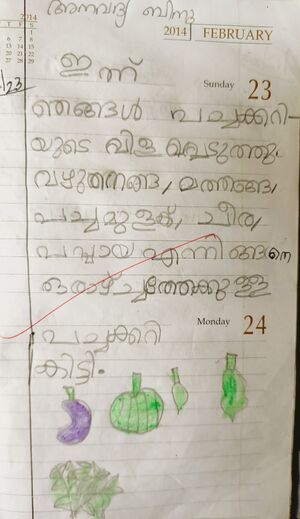 അന്നവദ്യ ബിനു
2014
T F S
1
6 7 8
13 14 15
20 21 22
27 28 29
2014 FEBRUARY
ഇന്ന്
Sunday 23
ഞങ്ങൾ പച്ചക്കറി-
യുടെ വിള വെടുത്തു.
വഴുതനങ്ങ, മത്തങ്ങ,
പച്ചമുളക്, ചീര,
പപ്പായ എന്നിങ്ങനെ
ഒരാഴ്ച്ചത്തേക്കുള്ള
Monday 24
പച്ചക്കറി
കിട്ടി.